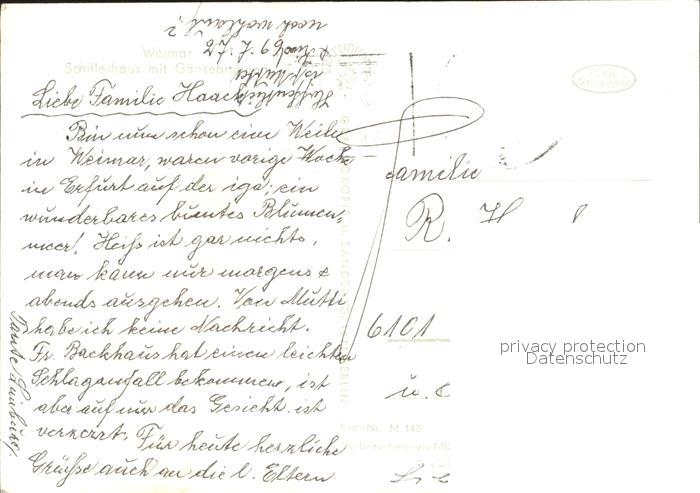 Weimar
Schillerhaus mit Gänsebrunnen
Liebe Familie Haack
Bin nun schon eine Weile
in Weimar, waren vorige Woche
in Erfurt auf der iga; ein
wunderbares buntes Blumen,
meer! Heiß ist gar nichts,
man kann nur morgens &
abends ausgehen. Von Mutti
habe ich keine Nachricht.
Fr. Backhaus hat einen leichten
Schlaganfall bekommen, ist
aber auf nur das Gesicht ist
verzerrt. Für heute herzliche
Grüße auch an die l. Eltern
Tante
noch wohlauf?
Familie
R. H
6101
privacy protection
Datenschutz
Best.-Nr. M 140